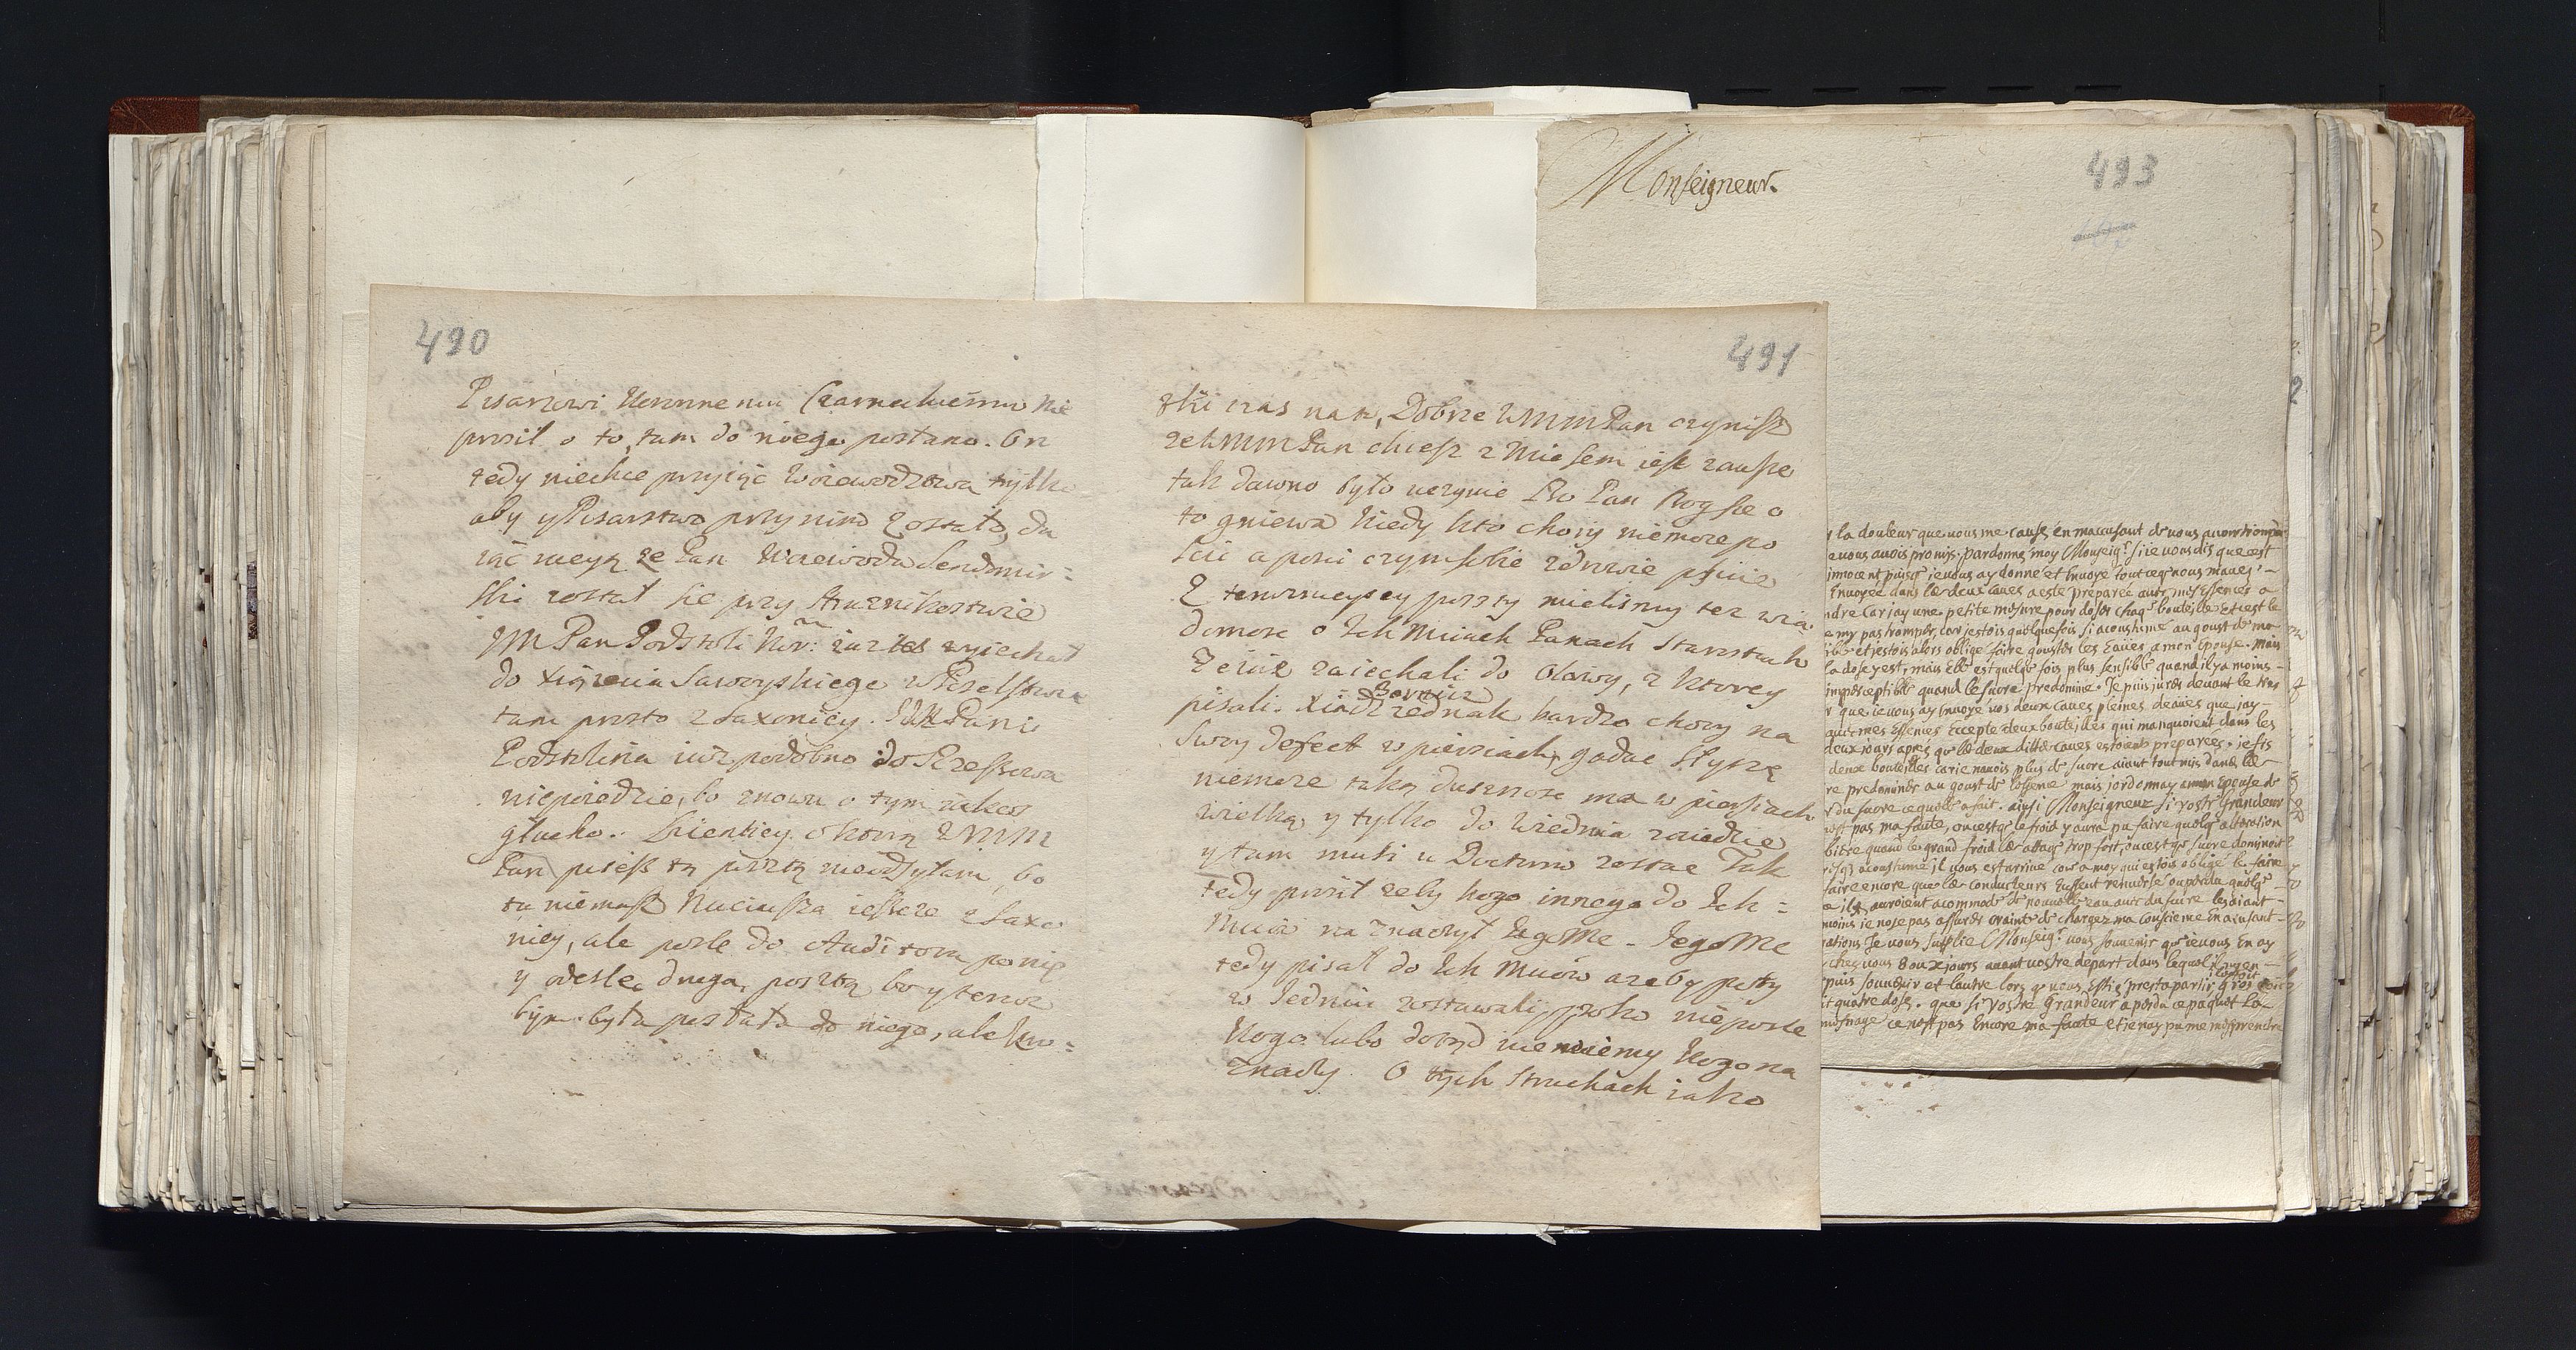 490
Pisarzowi Koronnemu Czarneckiemu nie
prosił o to, tam do niego posłano. On
tedy niechce przyiąć Woiewodztwa tylko
aby y Pisarstwo przy nim zostało, da
iąc racyą ze Pan Woiewoda Sendomir=
ski został sie przy
JM Pan Podstoli Kor: iuz wyiechał
do Xiązęcia
tam prosto z Saxonicy. JM Pani
Podstolina iuz podobno do Rzeszowa
niepoiedzie, bo znowu o tym iakos
głucho. którą WMM
Pan piszesz tą pocztą nieodsyłam, bo
tu niemasz ieszcze z Saxo
niey, ale posle do Auditora po nię
y odesle drugą pocztą bo y teraz
bym była posłała do niego, ale
491
czas na to, Dobrze WMMPan czynisz
ze WMMPan chcesz z Miesem iesc zawsze
tak dawno było uczynic Bo Pan Bog sie o
to gniewa kiedy kto chory niemoze po
scic a posci czym sobie zdrowie psuie
Z poczty mielismy tez wia
domosc o Ich Mciach Panach Starostach
ze iuz zaiechali do Olawy, z ktorey
pisali. Xiądz jednak bardzo chory na
swoy defect w piersiach, gadac słyszę
niemoze taką dusznosc ma w piersiach
wielką y tylko do Wiednia zaiedzie
y tam musi u Doctorow zostac Tak
tedy prosił zeby kogo innego do Ich=
Mciow naznaczył JegoMc - JegoMc
tedy pisał do Ich Mciow azeby poty
w Jedniu zostawali, poko nieposle
kogo lubo dotąd niewiemy kogo na
znaczy. O tych Struchach iako
Monseigneur
493
la douleur que vous me causez en maccusant de vous avoir trompé
vous avois promis. pardonnez moy Monseigr si ie vous dis que cest
innocent puisq ievous ay donné et Envoyé tout ceq nous mavez
Envoyée dans les deux caves a esté preparée avec mes Essences a
car iay une petite mesure pour doser chaq bouteille et cest le
my pas tromper, car jestois quelquefois si acoustumé au goust de ma
et jestois alors obligé faire gouster les Eaües a mon Epouse. Mais
la dose y est, mais Elle est quelq fois plus sensible quand il y a moins
imperceptible quand le sucre predomine. Je puis jurer devant le
que ie vous ay Envoyé vos deux caves pleines deaües que iay
avec mes Essences Excepté deux bouteilles qui manquoient dans les
deux jours apres q les deux dittes caves estoient preparées. ie fis
deux bouteilles car ie navois plus de sucre aiant tout mis dans les
predominer au goust de lessence mais jordonnay a mon Epouse de
du sucre ce quelle a fait. ainsi Monseigneur si vostre Grandeur
pas ma faute, ou cest q le froid y aura pu faire quelq alteration
quand le grand froid les attaq trop fort, ou cest q le sucre dominoit
acoustumé il vous est arrivé com̄e a moy qui estois obligé le faire
faire encore que les conducteurs Eussent renversé ou perdu quelq
auroient acommodé de nouvelle eau avec du sucre les aiant
moins ie nose pas assurer crainte de charger ma conscience En acusant
Je vous supplie Monseigr vous souvenir q ie vous En ay
chez vous 8 ou x jours avant vostre depart dans lequel il y en
puis souvenir et lautre lors q vous Estiez prest a partir
quatre doses. que si vostre Grandeur a perdu ce paquet
ce nest pas Encore ma faute et ie nay pu me meprendre